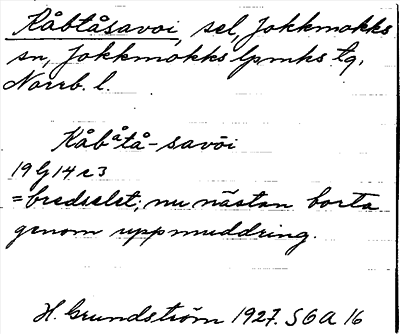 Råbtåsavoi, sel, Jokkmokks
sn, Jokkmokks lpmks tg,
Norrb. l.
Råbåtå-savoi
19 G 14 c 3
=bredselet, nu nästan borta
genom uppmuddring.
H. Grundström 1927. SOA 16